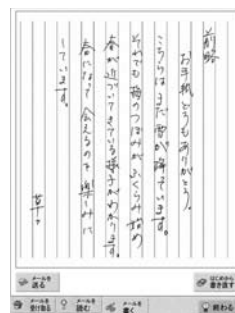 前略
お手紙どうもありがとう。
こちらはまだ雪が降ています。
それでも梅のつぼみがふくらみ始め
春が近づいてきている様子がわかります。
春になって会えるのを楽しみに
しています。
草々
メールを送る
はじめから書き直す
メールを受け取る
メールを読む
メールを書く
終わる